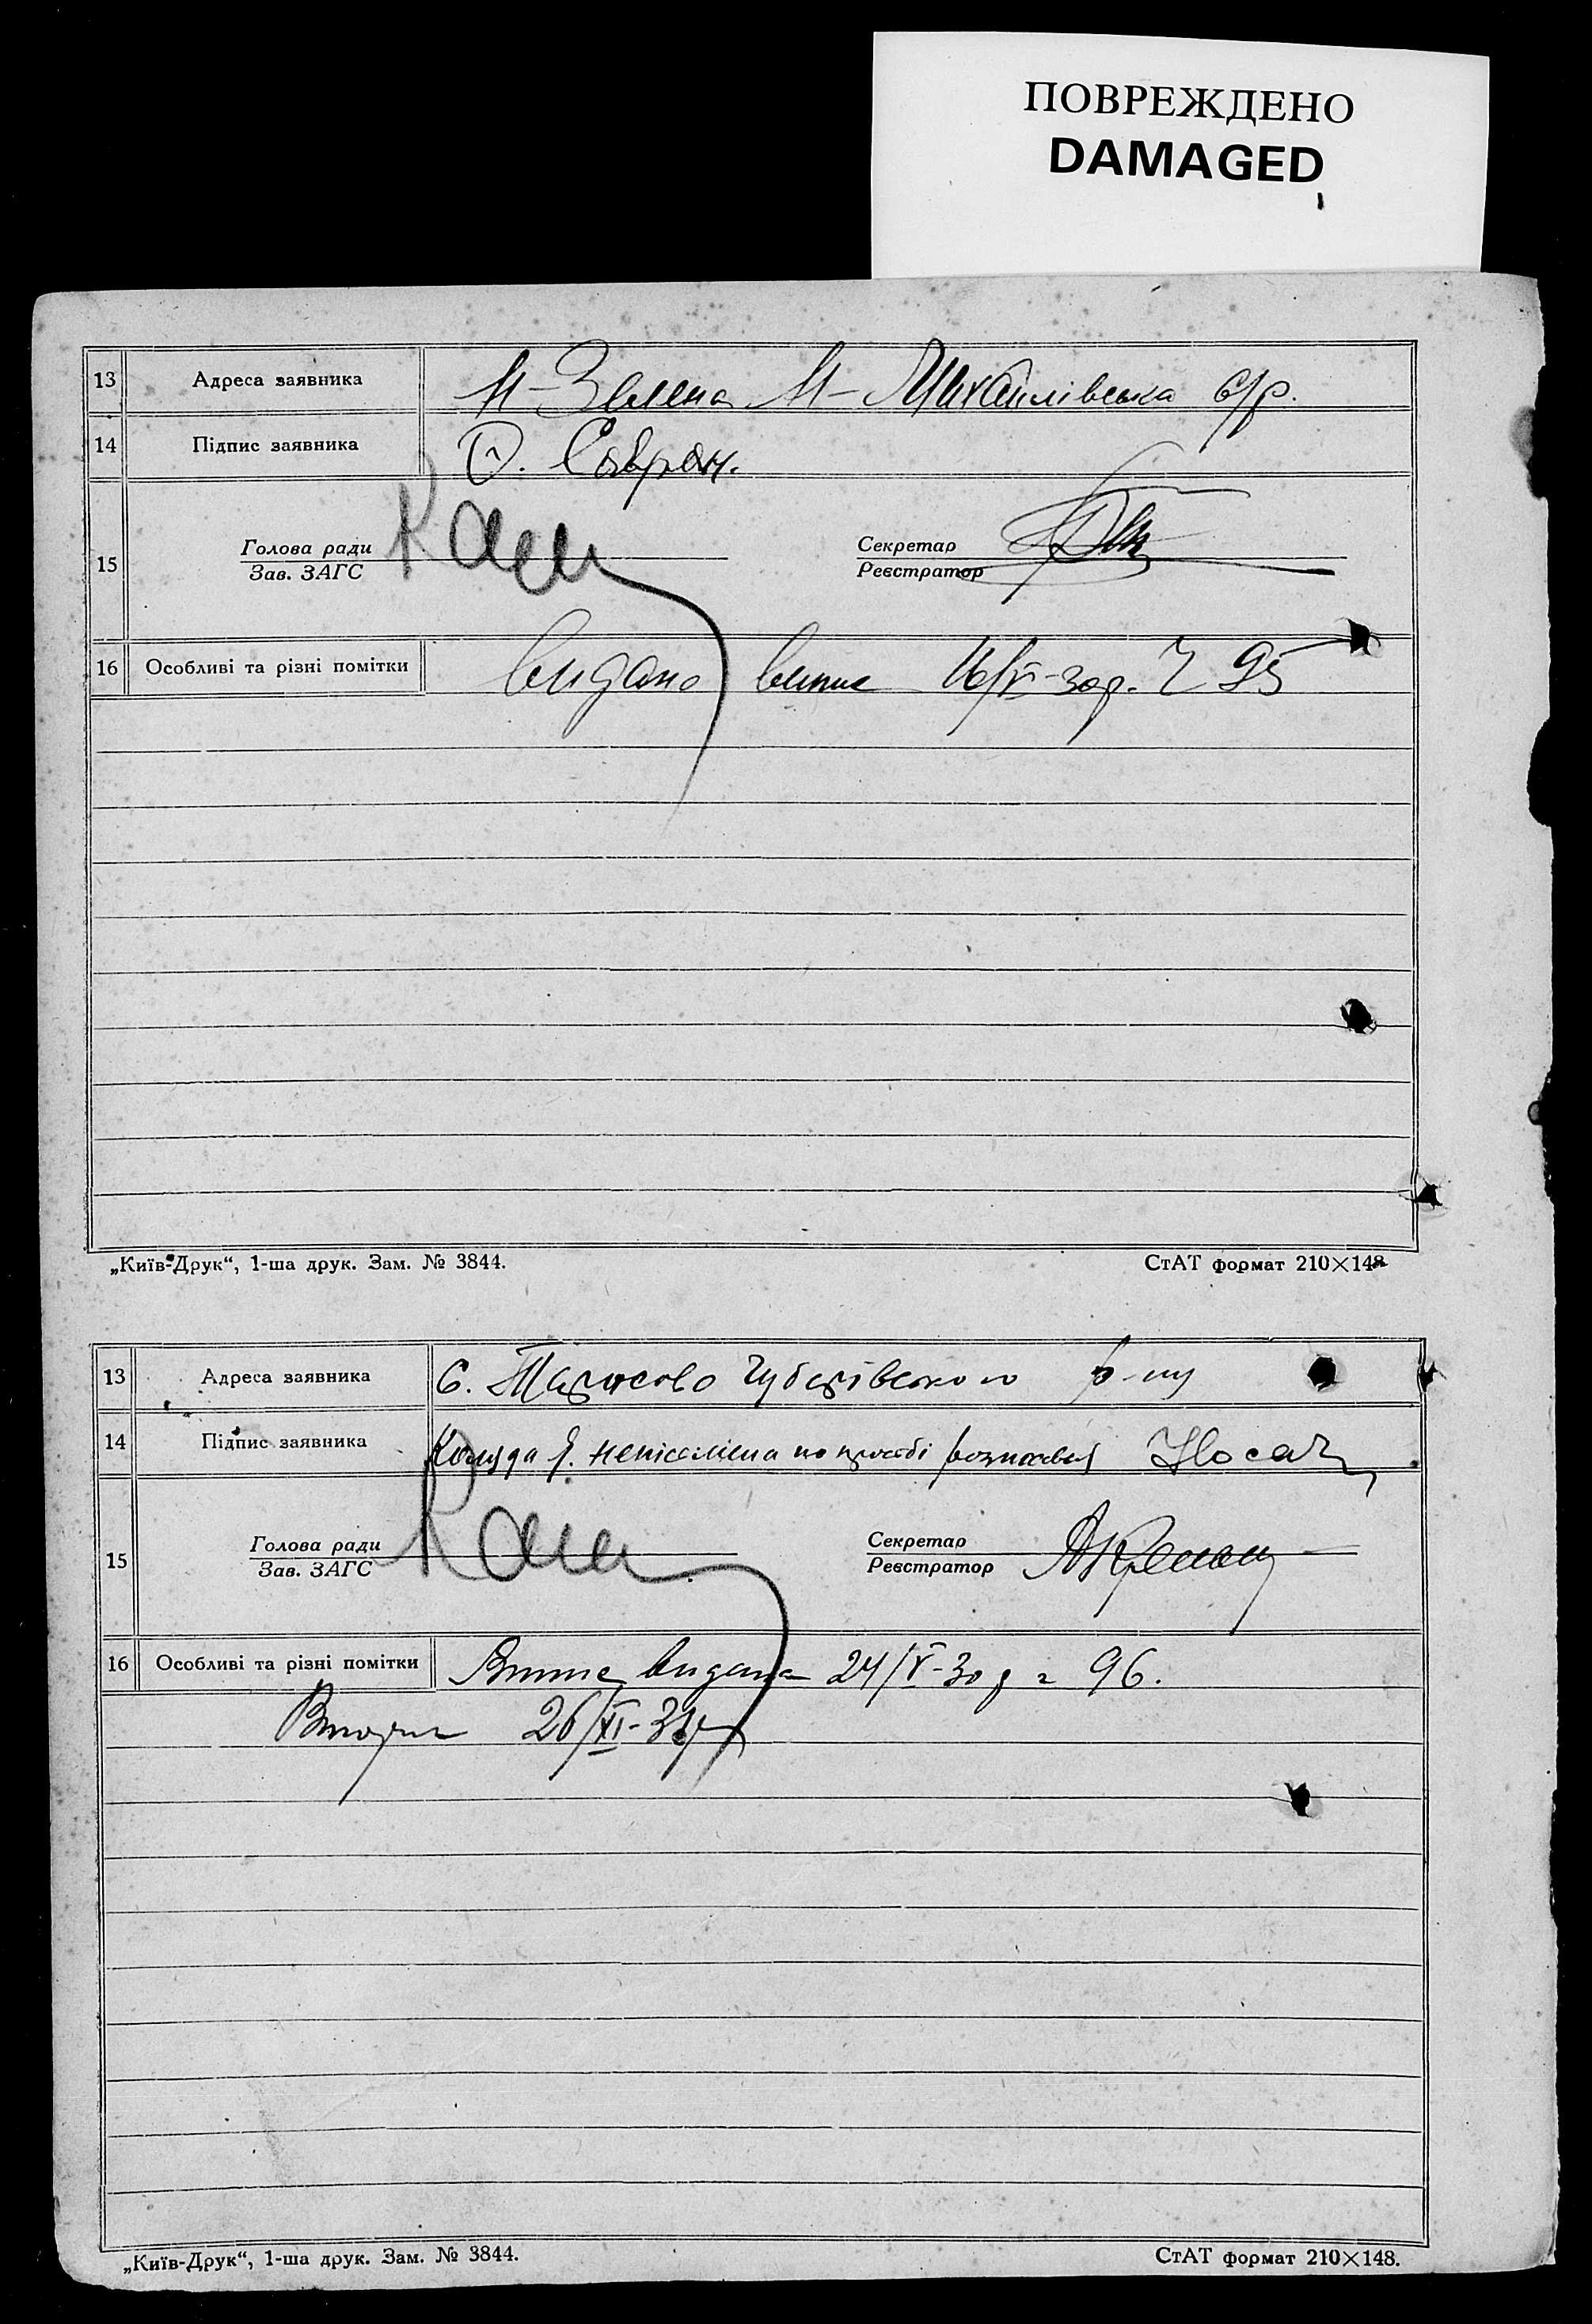 ПОВРЕЖДЕНО
DAMAGED
13 Адреса заявника Н-Зелена Н-Михайлівська с/р.
14 Підпис заявника
15 Голова ради Секретар
Зав. ЗАГС Реєстратор
16 Особливі та різні помітки видано випис 16/V-30р. Ч 95
„Київ-Друк“, 1-ша друк. Зам. № 3844. СтАТ формат 210×148
13 Адреса заявника С. Тарасово Чубарівського р-ну
14 Підпис заявника Коляда Я. неписьмена по просьбі Носач
15 Голова ради Секретар
Зав. ЗАГС Реєстратор
16 Особливі та різні помітки Випис видано 24/V-30 р 96.
26/XI-
„Київ-Друк“, 1-ша друк. Зам. № 3844. СтАТ формат 210×148.